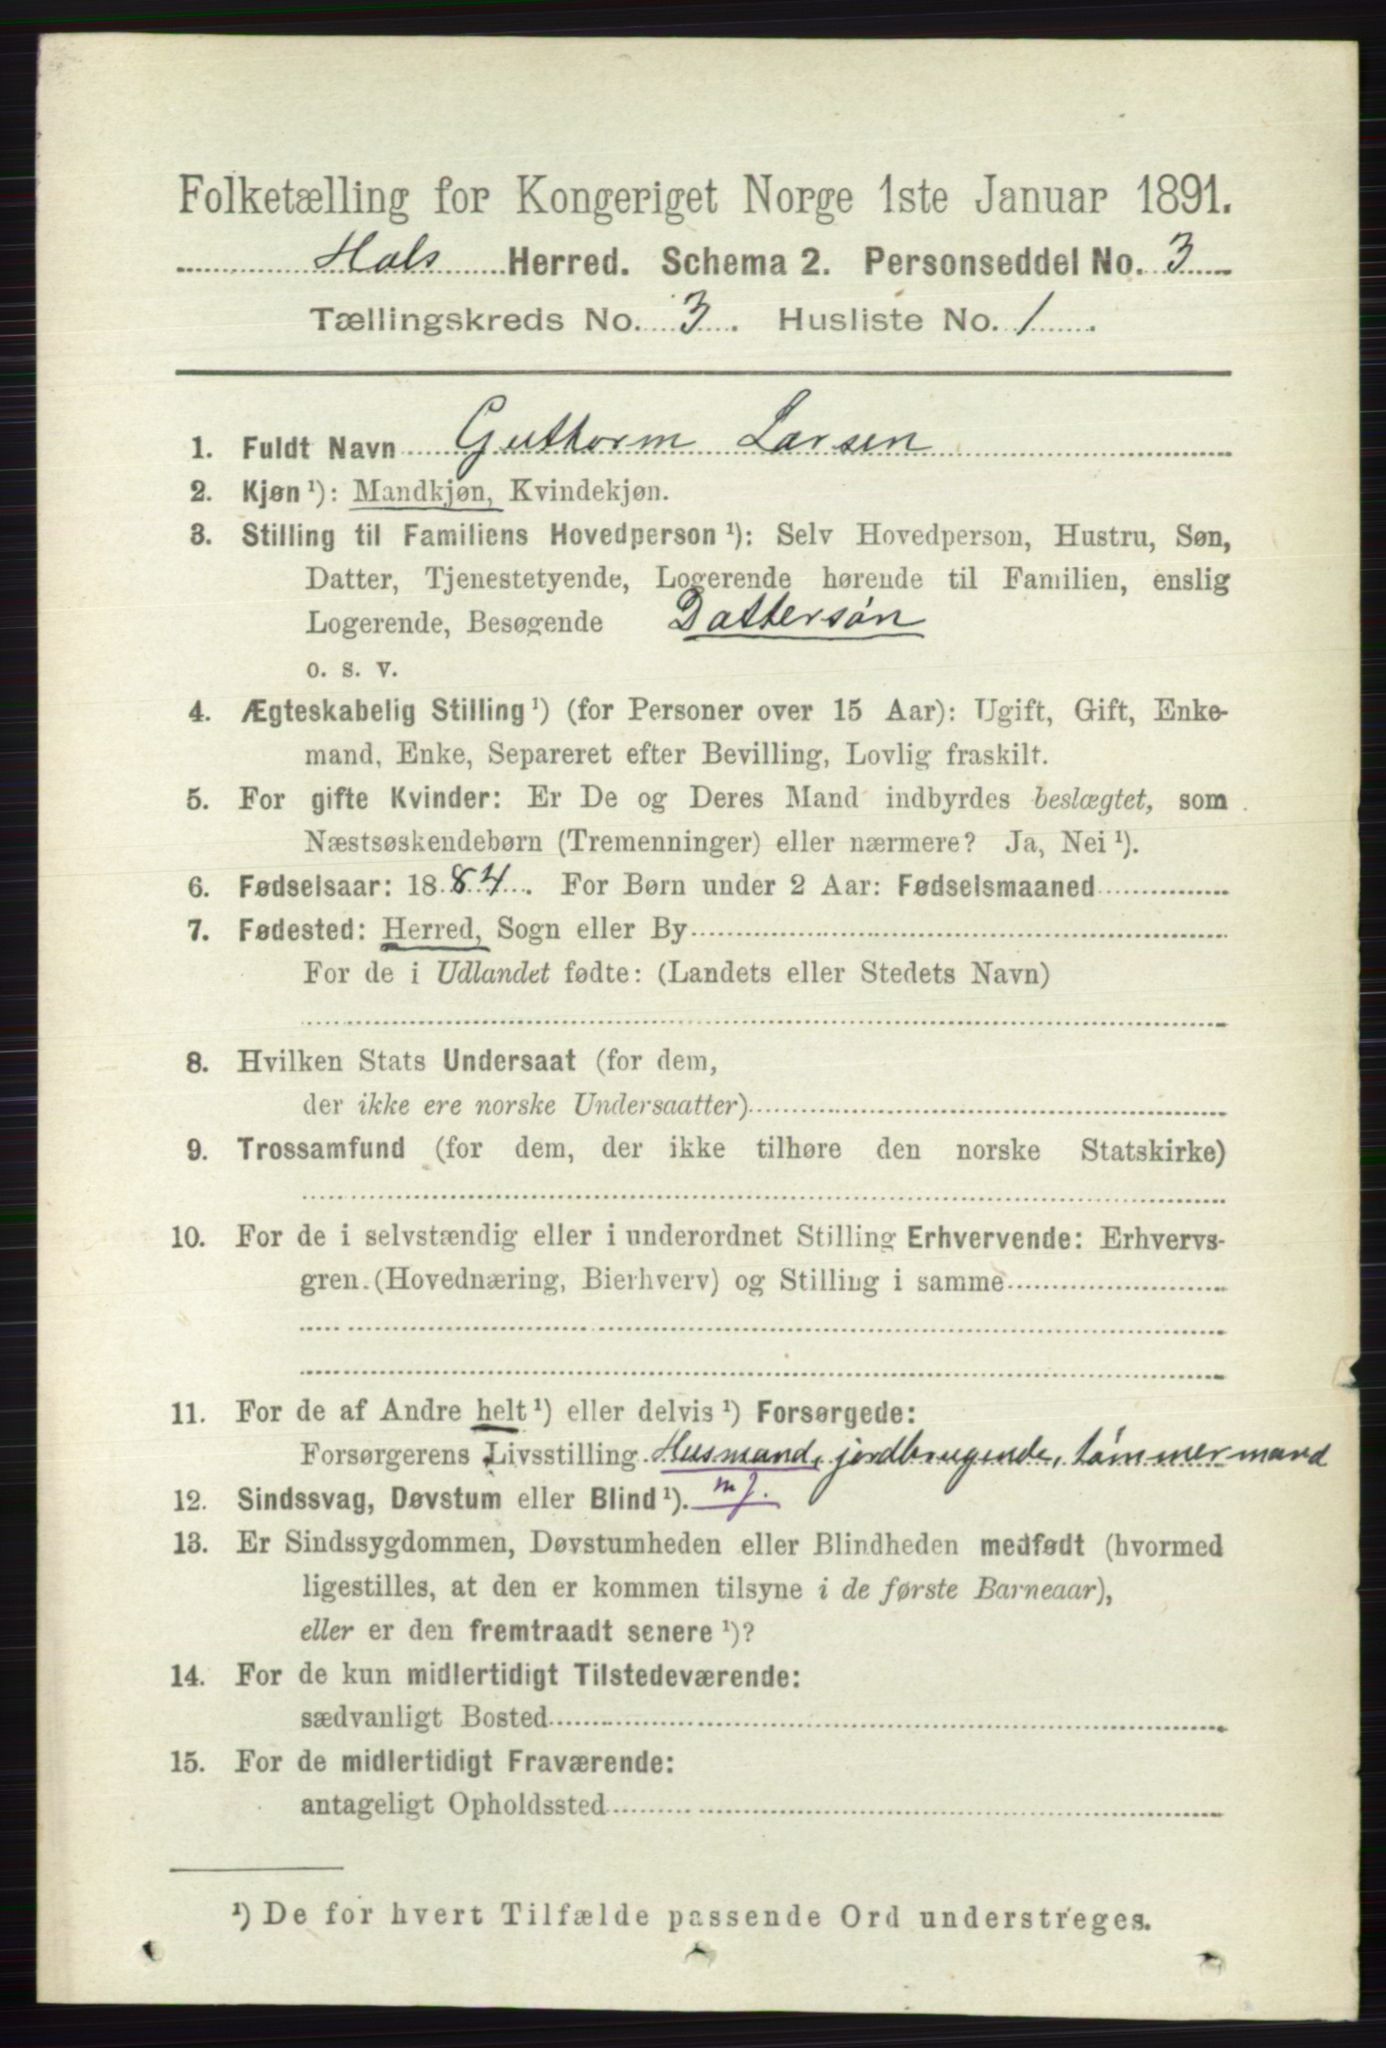 Folketælling for Kongeriget Norge 1ste Januar 1891.
Hals Herred. Schema 2. Personseddel No. 3
Tællingskreds No. 3. Husliste No. 1.
1. Fuldt Navn Guthorm Larsen
2. Kjøn ¹): Mandkjøn, Kvindekjøn.
3. Stilling til Familiens Hovedperson ¹): Selv Hovedperson, Hustru, Søn,
Datter, Tjenestetyende, Logerende hørende til Familien, enslig
Logerende, Besøgende Dattersøn
o. s. v.
4. Ægteskabelig Stilling ¹) (for Personer over 15 Aar): Ugift, Gift, Enke-
mand, Enke, Separeret efter Bevilling, Lovlig fraskilt.
5. For gifte Kvinder: Er De og Deres Mand indbyrdes beslægtet, som
Næstsøskendebørn (Tremenninger) eller nærmere? Ja, Nei ¹).
6. Fødselsaar: 1884. For Børn under 2 Aar: Fødselsmaaned
7. Fødested: Herred, Sogn eller By
For de i Udlandet fødte: (Landets eller Stedets Navn)
8. Hvilken Stats Undersaat (for dem,
der ikke ere norske Undersaatter)
9. Trossamfund (for dem, der ikke tilhøre den norske Statskirke)
10. For de i selvstændig eller i underordnet Stilling Erhvervende: Erhvervs-
gren (Hovednæring, Bierhverv) og Stilling i samme
11. For de af Andre helt ¹) eller delvis ¹) Forsørgede:
Forsørgerens Livsstilling Husmand, jordbrugende, tømmermand
12. Sindssvag, Døvstum eller Blind ¹). mj.
13. Er Sindssygdommen, Døvstumheden eller Blindheden medfødt (hvormed
ligestilles, at den er kommen tilsyne i de første Barneaar),
eller er den fremtraadt senere ¹)?
14. For de kun midlertidigt Tilstedeværende:
sædvanligt Bosted
15. For de midlertidigt Fraværende:
antageligt Opholdssted
¹) De for hvert Tilfælde passende Ord understreges.